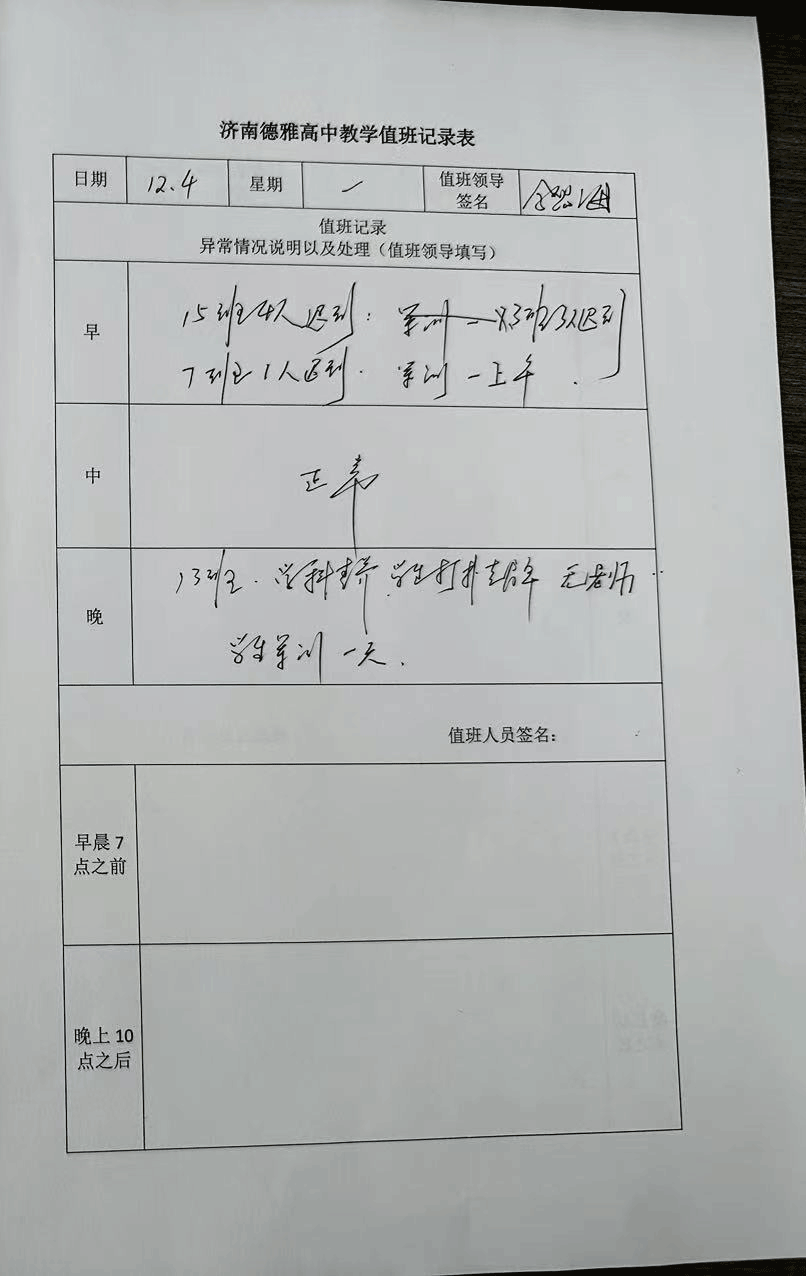 济南德雅高中教学值班记录表
日期 12.4 星期 一 值班领导签名
值班记录
异常情况说明以及处理（值班领导填写）
早
15班4人迟到： 军训一 13班3人迟到
7班1人迟到. 军训一上午.
中
正常
晚
13班. 学科素养 学生打扑克 无老师
学生军训一天.
值班人员签名：
早晨7
点之前
晚上10
点之后